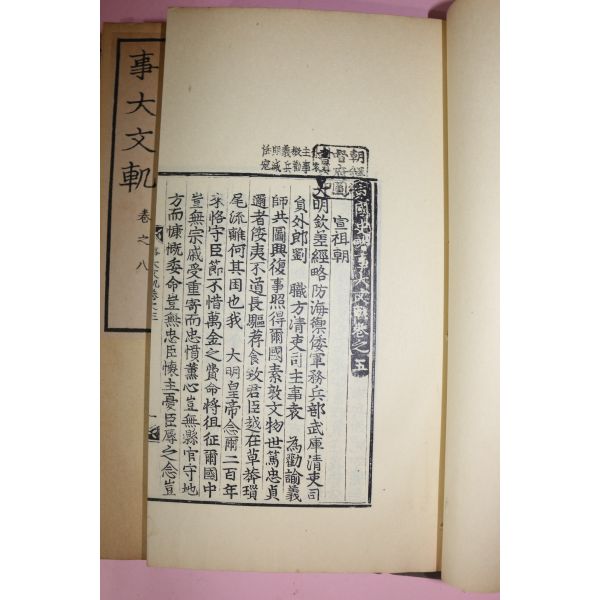 事大文軌
卷之八
事大文軌卷之三
主事袁
檄勸
義兵
卽滅
恬寇
朝鮮
督府圖
事大文軌卷之五
宣祖朝
大明欽差經略防海禦倭軍務兵部武庫清吏司
員外郎劉 職方清吏司主事袁 為勸諭義
師共圖興復事照得爾國素敦文物世篤忠貞
邇者倭夷不道長驅荐食致君臣越在草莽瑣
尾流離何其困也我 大明皇帝念爾二百年
來恪守臣節不惜萬金之費命將徂征爾國中
豈無宗戚受重寄而忠憤薰心豈無縣官守地
方而慷慨委命豈無忠臣懷主憂臣辱之念豈